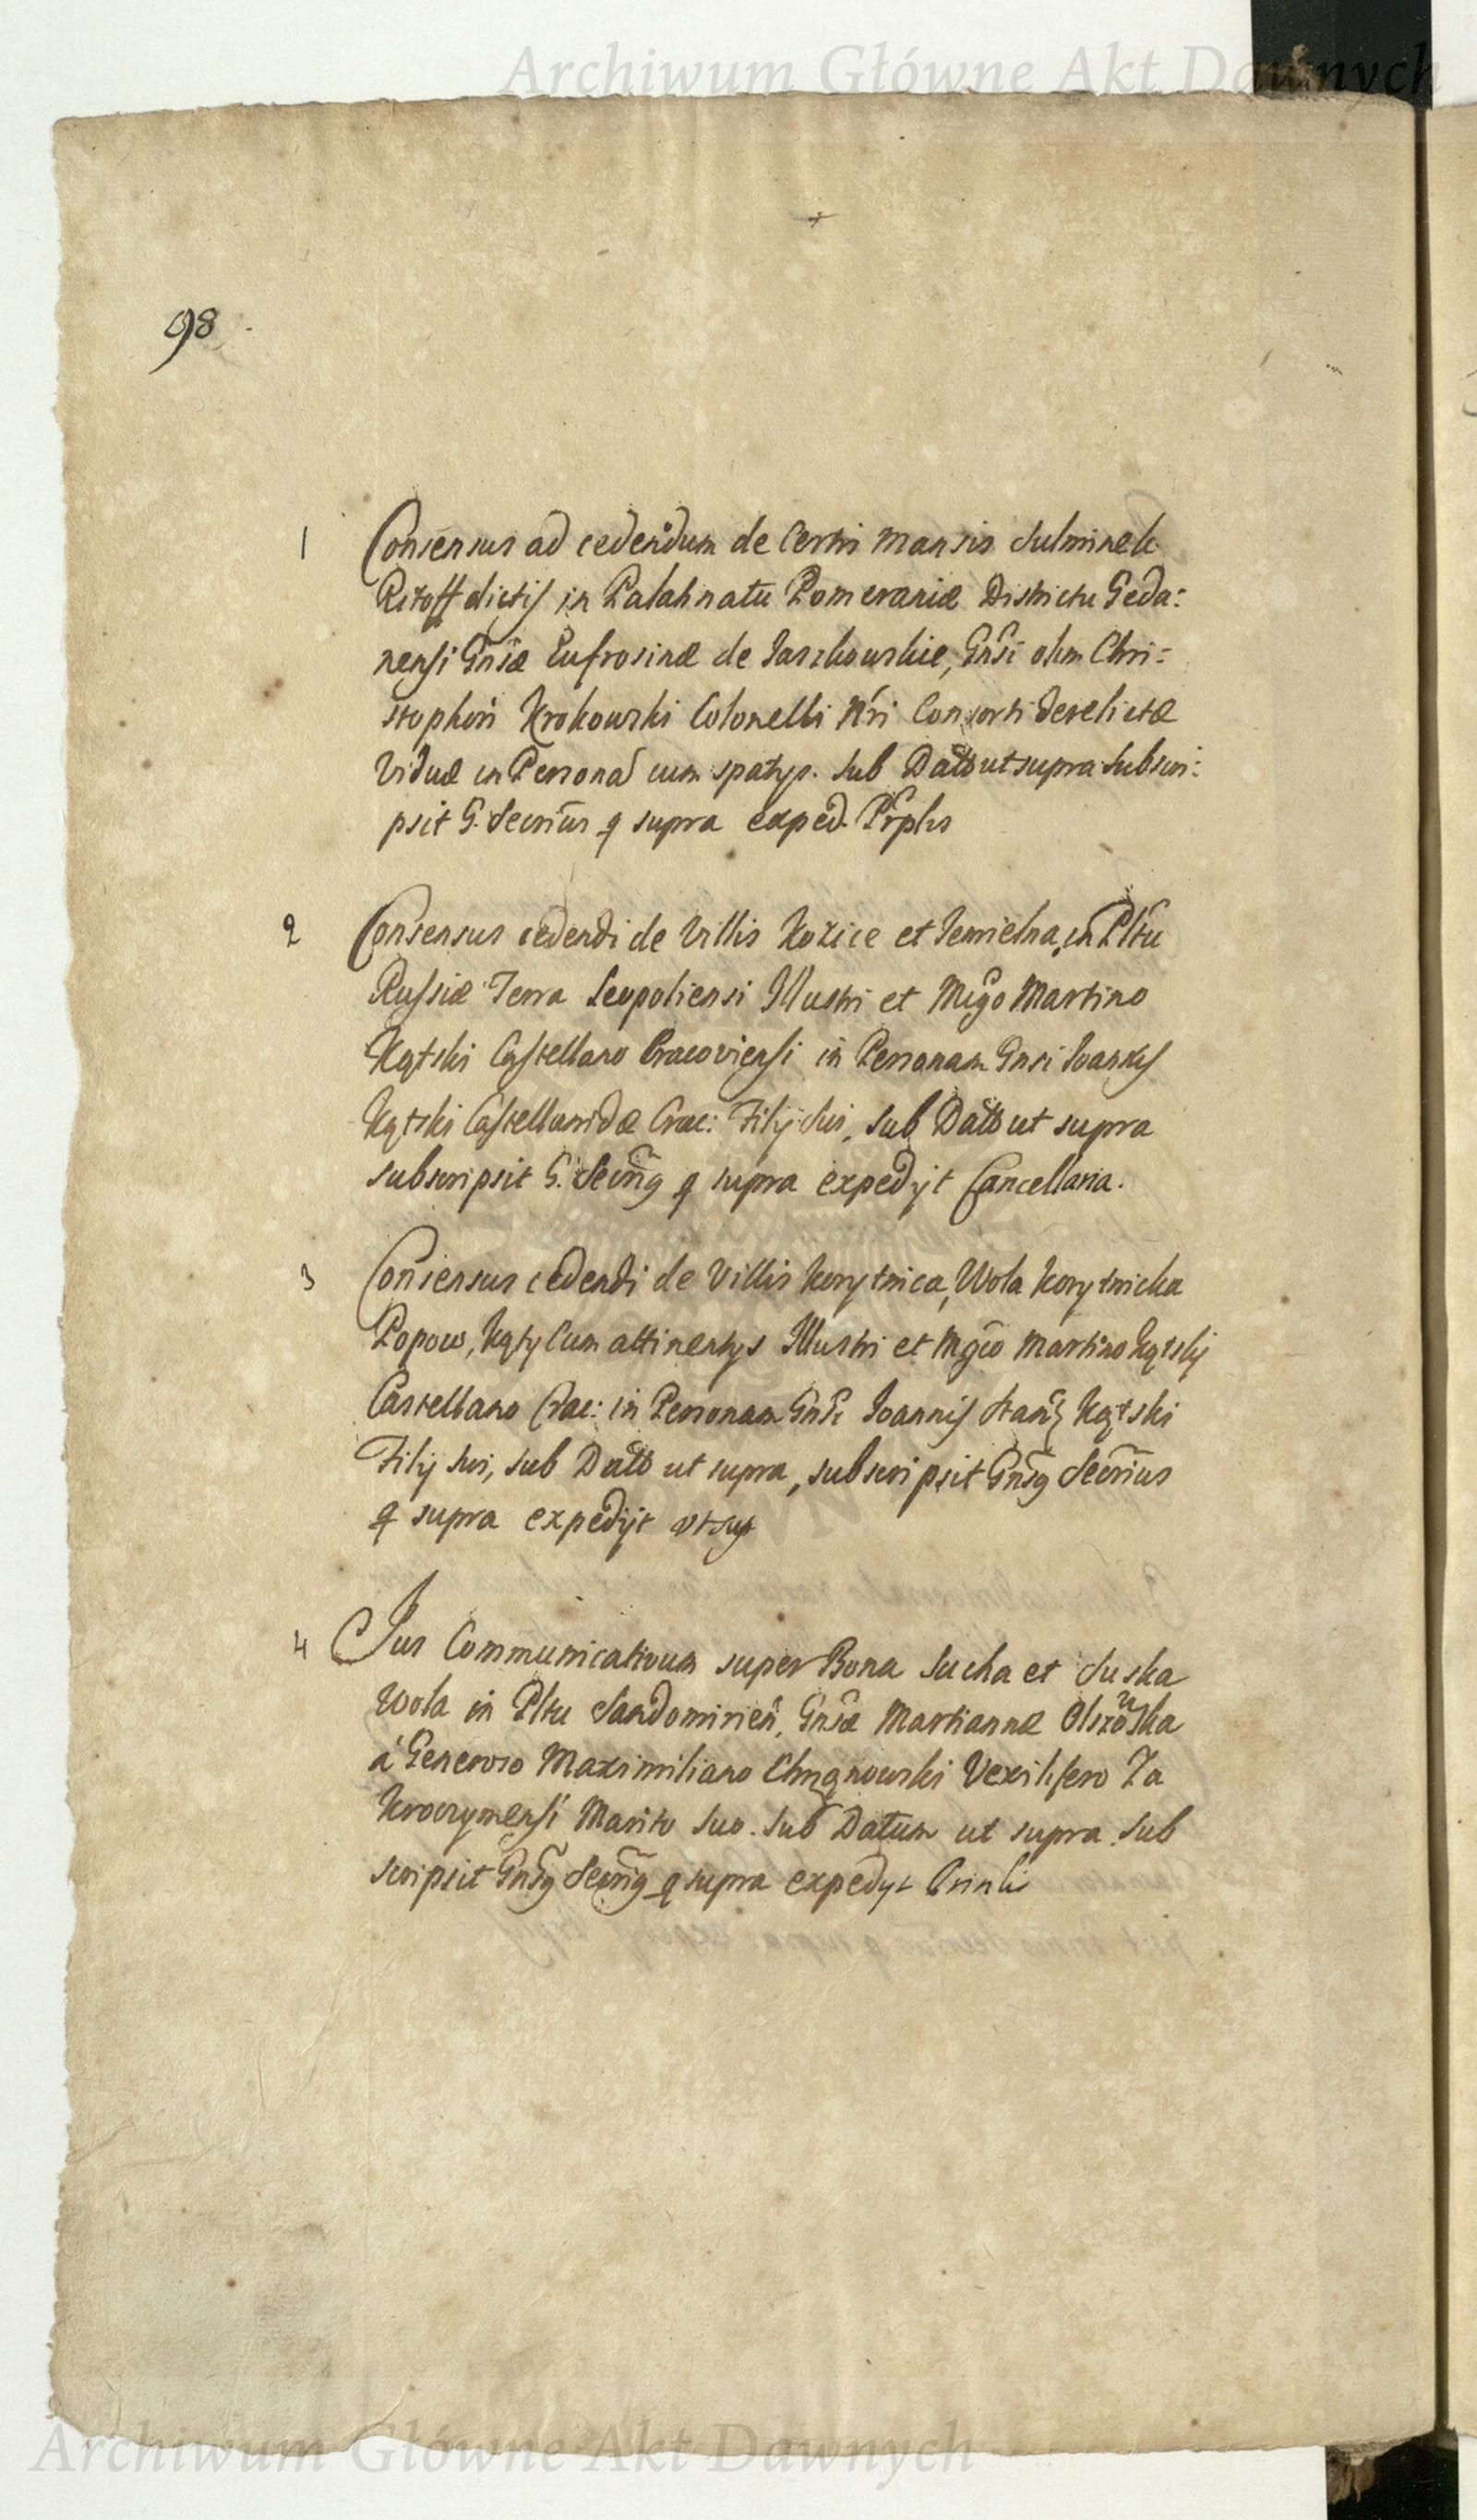 Archiwum Główne Akt Dawnych
98
1 Consensus ad cedendum de Certis Mansis Sulminek
Ritoff dictis in Palatinatu Pomeraniæ Districtu Geda:
nensi Gnsæ Eufrosinæ de Jaszkowskie, Gnsi olim Chri=
stophori Krokowski Colonelli Nri Consorti derelictæ
Viduæ in Persona cum spatys. Sub Datto ut supra subscri:
psit G. Secrius q supra exped.
2 Consensus cedendi de Villis Kozice et Jemielna, in Pltu
Russiæ Terra Leopoliensi Illustri et Mgo Martino
Kątski Castellano Cracoviensi in Personam Gnsi Joannis
Kątski Castellanidæ Crac: Filij sui, sub Datto ut supra
subscripsit G. Secrig q supra expedijt Cancellaria.
3 Consensus cedendi de Villis Korytnica, Wola Korytnicka
Popow, Kąty Cum attinentys Illustri et Mgco Martino Kątskij
Castellano Crac: in Personam Gnsi Joannis Stan: Kątski
Filij sui, sub Datto ut supra, subscripsit Gnsg Secrius
q supra expedijt ut sup
4 Jus Communicativum super Bona Sucha et Suska
Wola in Pltu Sandomirien, Gnsæ Mariannæ Olszowska
á Generoso Maximiliano Chrząnowski Vexilifero Za
kroczymensi Marito suo. Sub Datum ut supra. Sub
scripsit Gnsg Secrig q supra expedyt
Archiwum Główne Akt Dawnych